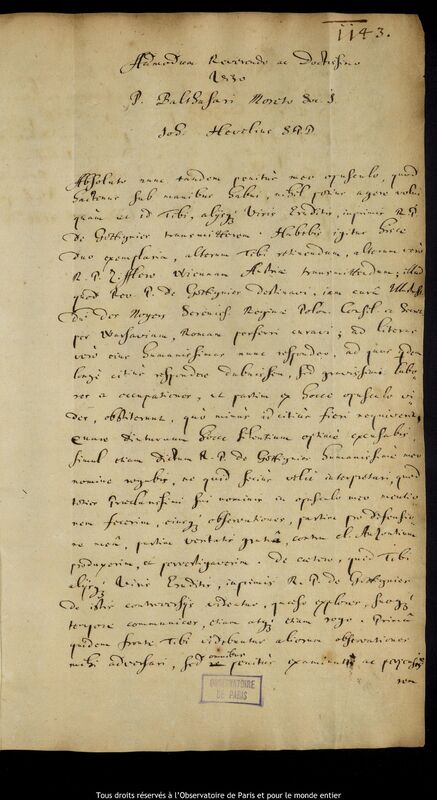 1143.
Admodum Reverendo ac Doctissimo
Viro
P. Balthasari Moreto Soc. J.
Joh. Hevelius S.P.D
Absoluto nunc tandem penitus meo opusculo, quod
hactenus sub manibus habui, nihil prius agere volui
quàm ut id Tibi, alijsq; Viris Eruditis, inprimis R. P.
de Gottignier transmitterem. Habebis igitur hicce
duo exemplaria, alterum Tibi retinendum, alterum verò
R. P. Viennam Austriae transmittendum; illud
quod Rev. P. de Gottignier destinavi, iam curâ
Dn. des Noyers Sereniss. Reginae Polon. Consil. a Secret.
per Warsaviam, Romam perferri curavi; ad literas
verò eius humanissimas nunc respondeo, ad quas quidem
longè citiùs respondere debuissem, sed gravissimi labo
res ac occupationes, ut partim ex hocce opusculo vi
des, obstiterunt, quò minùs id citiùs fieri nequiverit,
Quare diuturnum hocce silentium optimè excusabis,
simul etiam dictum R. P. de Gottignier humanissimè meo
nomine rogabis, ne quid seciùs velit interpretari, quod
toties Praeclarissimi sui nominis in opusculo meo mentio
nem fecerim, eiusq; observationes, partim pro defensio
ne meâ, partim veritatis gratiâ, contra Cl. Autontium
produxerim, et pervestigaverim. De caetero, quid Tibi
alijsq; Viris Eruditis, inprimis R. P. de Gottignier
de istis controversijs videatur, quaeso explores, suoq;
tempore communices, etiam atq; etiam rogo. Primâ
quidem fronte Tibi videbuntur aliorum observationes
mihi adversari, sed omnibus penitùs examinatis ac
rem
OBSERVATOIRE
DE PARIS
Tous droits réservés à l'Observatoire de Paris et pour le monde entier